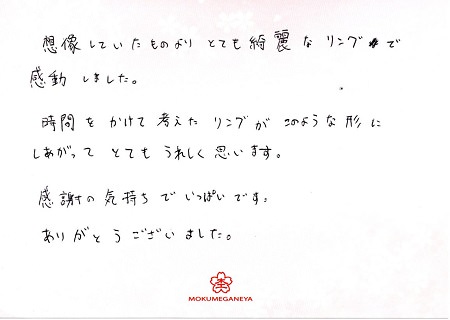 想像していたものより とても綺麗な リングで
感動しました。
時間を かけて 考えた リングが このような形に
しあがって とても うれしく 思います。
感謝の気持ちで いっぱいです。
ありがとうございました。
MOKUMEGANEYA